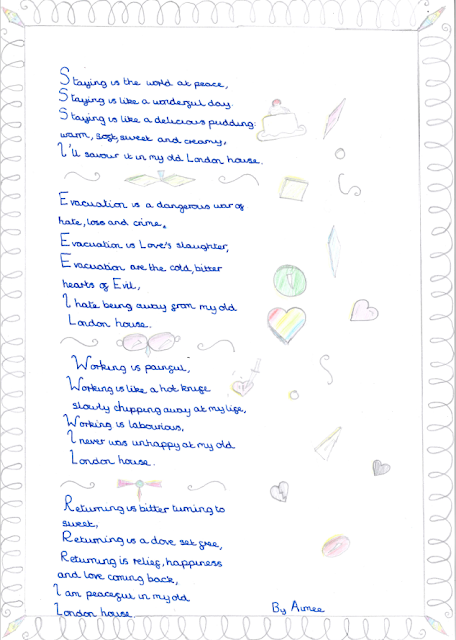 Staying is the world at peace,
Staying is like a wonderful day.
Staying is like a delicious pudding:
warm, soft, sweet and creamy,
I'll savour it in my old London house.
Evacuation is a dangerous war of
hate, loss and crime,
Evacuation is Love's slaughter,
Evacuation are the cold, bitter
hearts of Evil,
I hate being away from my old
London house.
Working is painful,
Working is like a hot knife
slowly chipping away at my life,
Working is labourious,
I never was unhappy at my old
London house.
Returning is bitter turning to
sweet,
Returning is a dove set free,
Returning is relief, happiness
and love coming back,
I am peaceful in my old
London house.
By Aimee